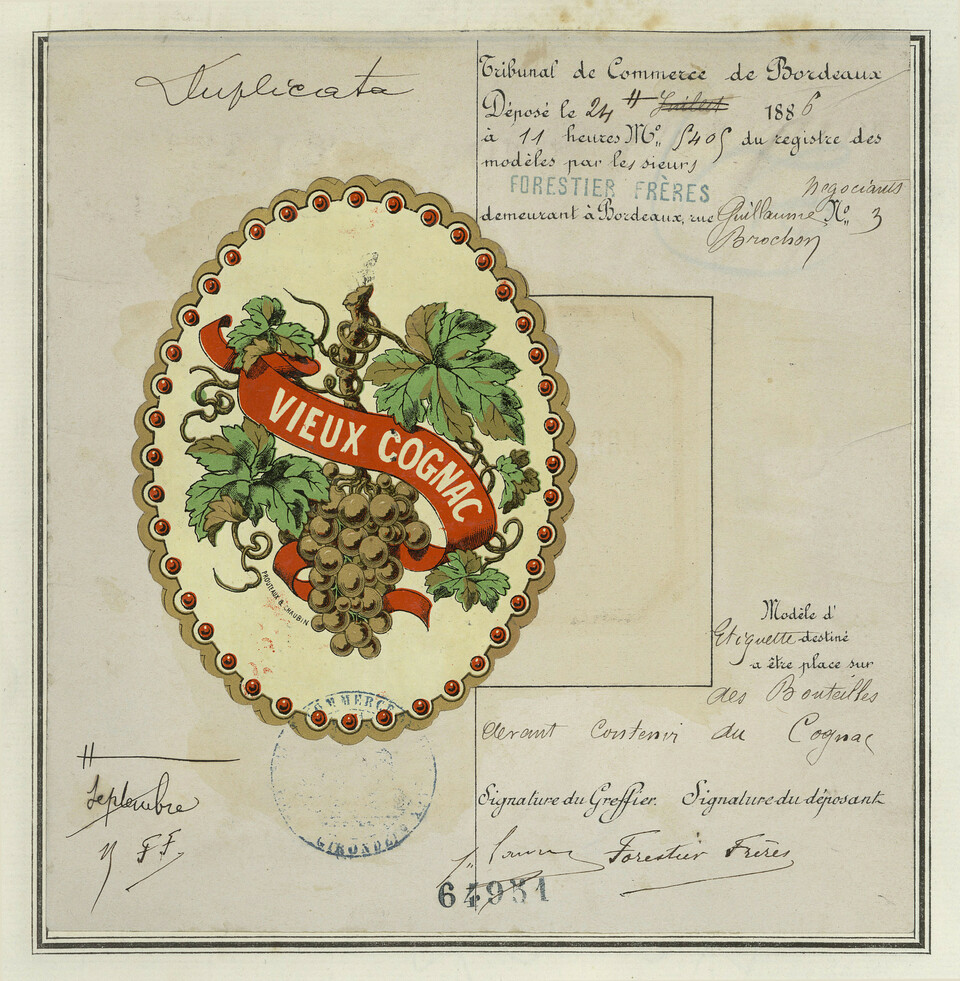 Duplicata
Tribunal de Commerce de Bordeaux
Déposé le 24 # Juillet 1886
à 11 heures Mº 5405 du registre des
modèles par les sieurs
FORESTIER FRÈRES négociants
demeurant à Bordeaux, rue Guillaume Nº 3
Brochon
VIEUX COGNAC
PROUTEAUX & CHAUBIN
Modèle d'
Etiquette destiné
a être place sur
des Bouteilles
devant contenir du Cognac
COMMERCE
GIRONDE
#
Septembre
F. F.
Signature du Greffier. Signature du déposant
Forestier Frères
64931